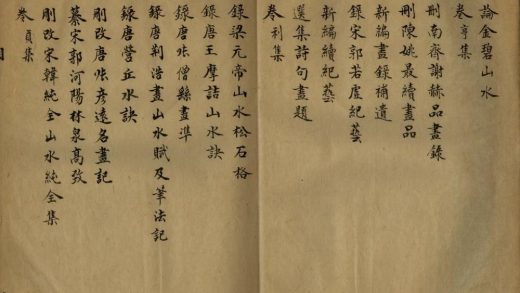 論金碧山水
卷亨集
刪南齊謝赫品畫錄
刪陳姚最續畫品
新編畫錄補遺
錄宋郭若虛紀藝
新編續紀藝
選集詩句畫題
卷利集
錄梁元帝山水松石格
錄唐王摩詰山水訣
錄唐張僧繇畫準
錄唐荆浩畫山水賦及筆法記
錄唐營丘水訣
刪改唐張彥遠名畫記
纂宋郭河陽林泉高致
刪改宋韓純全山水純全集
卷貞集